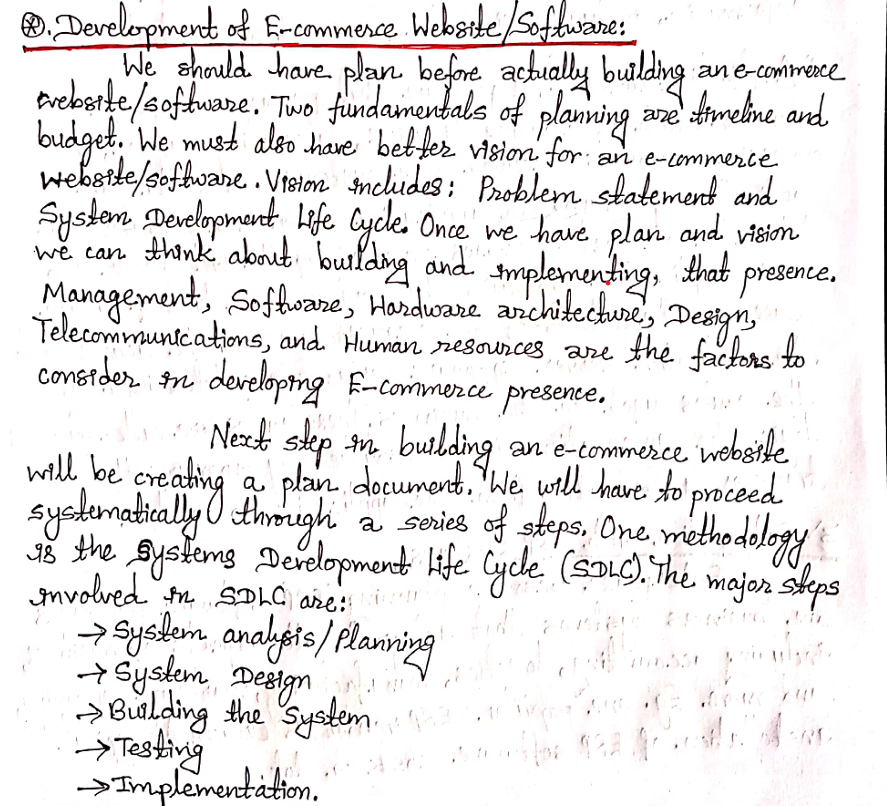 ⊛. Development of E-commerce Website/Software:
We should have plan before actually building an e-commerce
website/software. Two fundamentals of planning are timeline and
budget. We must also have better vision for an e-commerce
website/software. Vision includes: Problem statement and
System Development Life Cycle. Once we have plan and vision
we can think about building and implementing, that presence.
Management, Software, Hardware architecture, Design,
Telecommunications, and Human resources are the factors to
consider in developing E-commerce presence.
Next step in building an e-commerce website
will be creating a plan document. We will have to proceed
systematically through a series of steps. One methodology
is the Systems Development Life Cycle (SDLC). The major steps
involved in SDLC are:
→ System analysis/Planning
→ System Design
→ Building the System
→ Testing
→ Implementation.